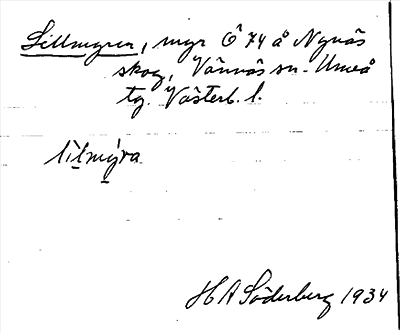 Sillmyren, myr Ö 74 å Nynäs
skog, Vännäs sn. Umeå
tg. Västerb. l.
lìlmýra
H A Söderberg 1934